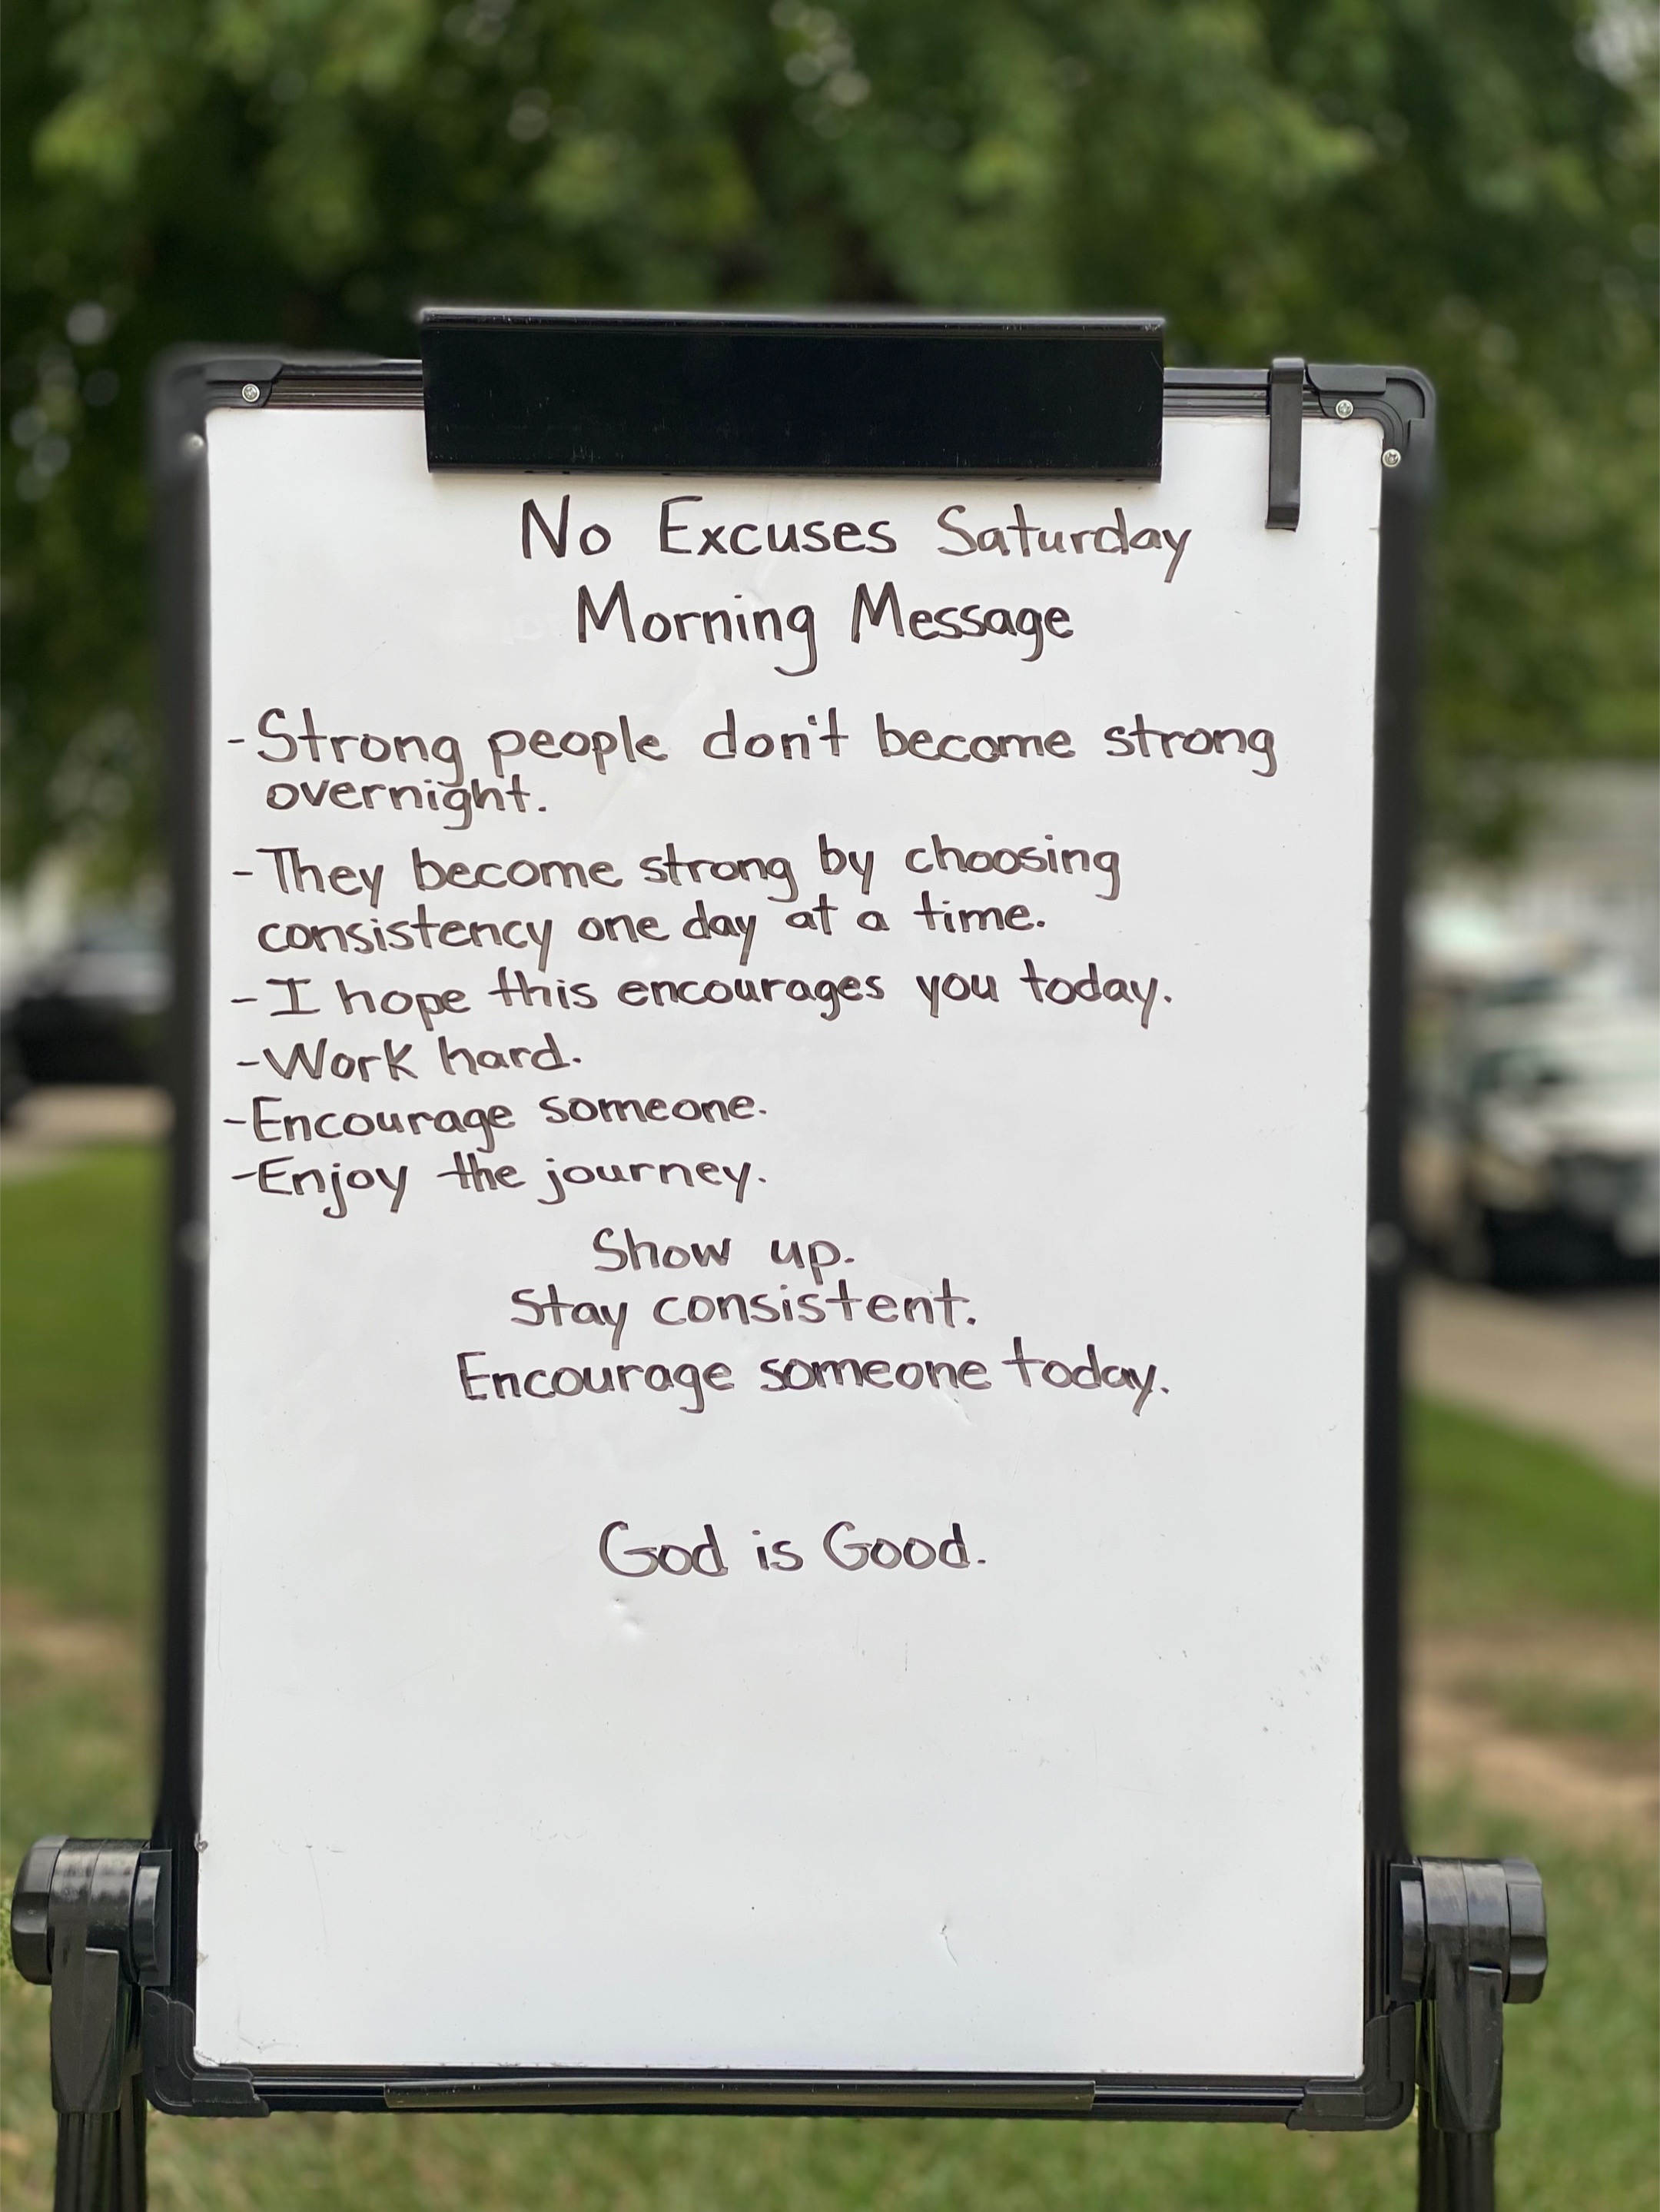 No Excuses Saturday
Morning Message
- Strong people don't become strong
overnight.
- They become strong by choosing
consistency one day at a time.
- I hope this encourages you today.
- Work hard.
- Encourage someone.
- Enjoy the journey.
Show up.
Stay consistent.
Encourage someone today.
God is Good.